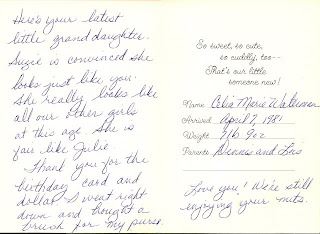 Here's your latest
little granddaughter.
Suzie is convinced she
looks just like you.
She really looks like
all our other girls
at this age. She is
fair like Julie.
Thank you for the
birthday card and
dollar I went right
down and bought a
brush for my purse.
So sweet, so cute,
so cuddly, too—
That's our little
someone new!
Name Celia Marie Waterman
Arrived April 7, 1981
Weight 7 lb. 9 oz
Parents Dennis and Lois
Love you! We're still
enjoying your nuts.